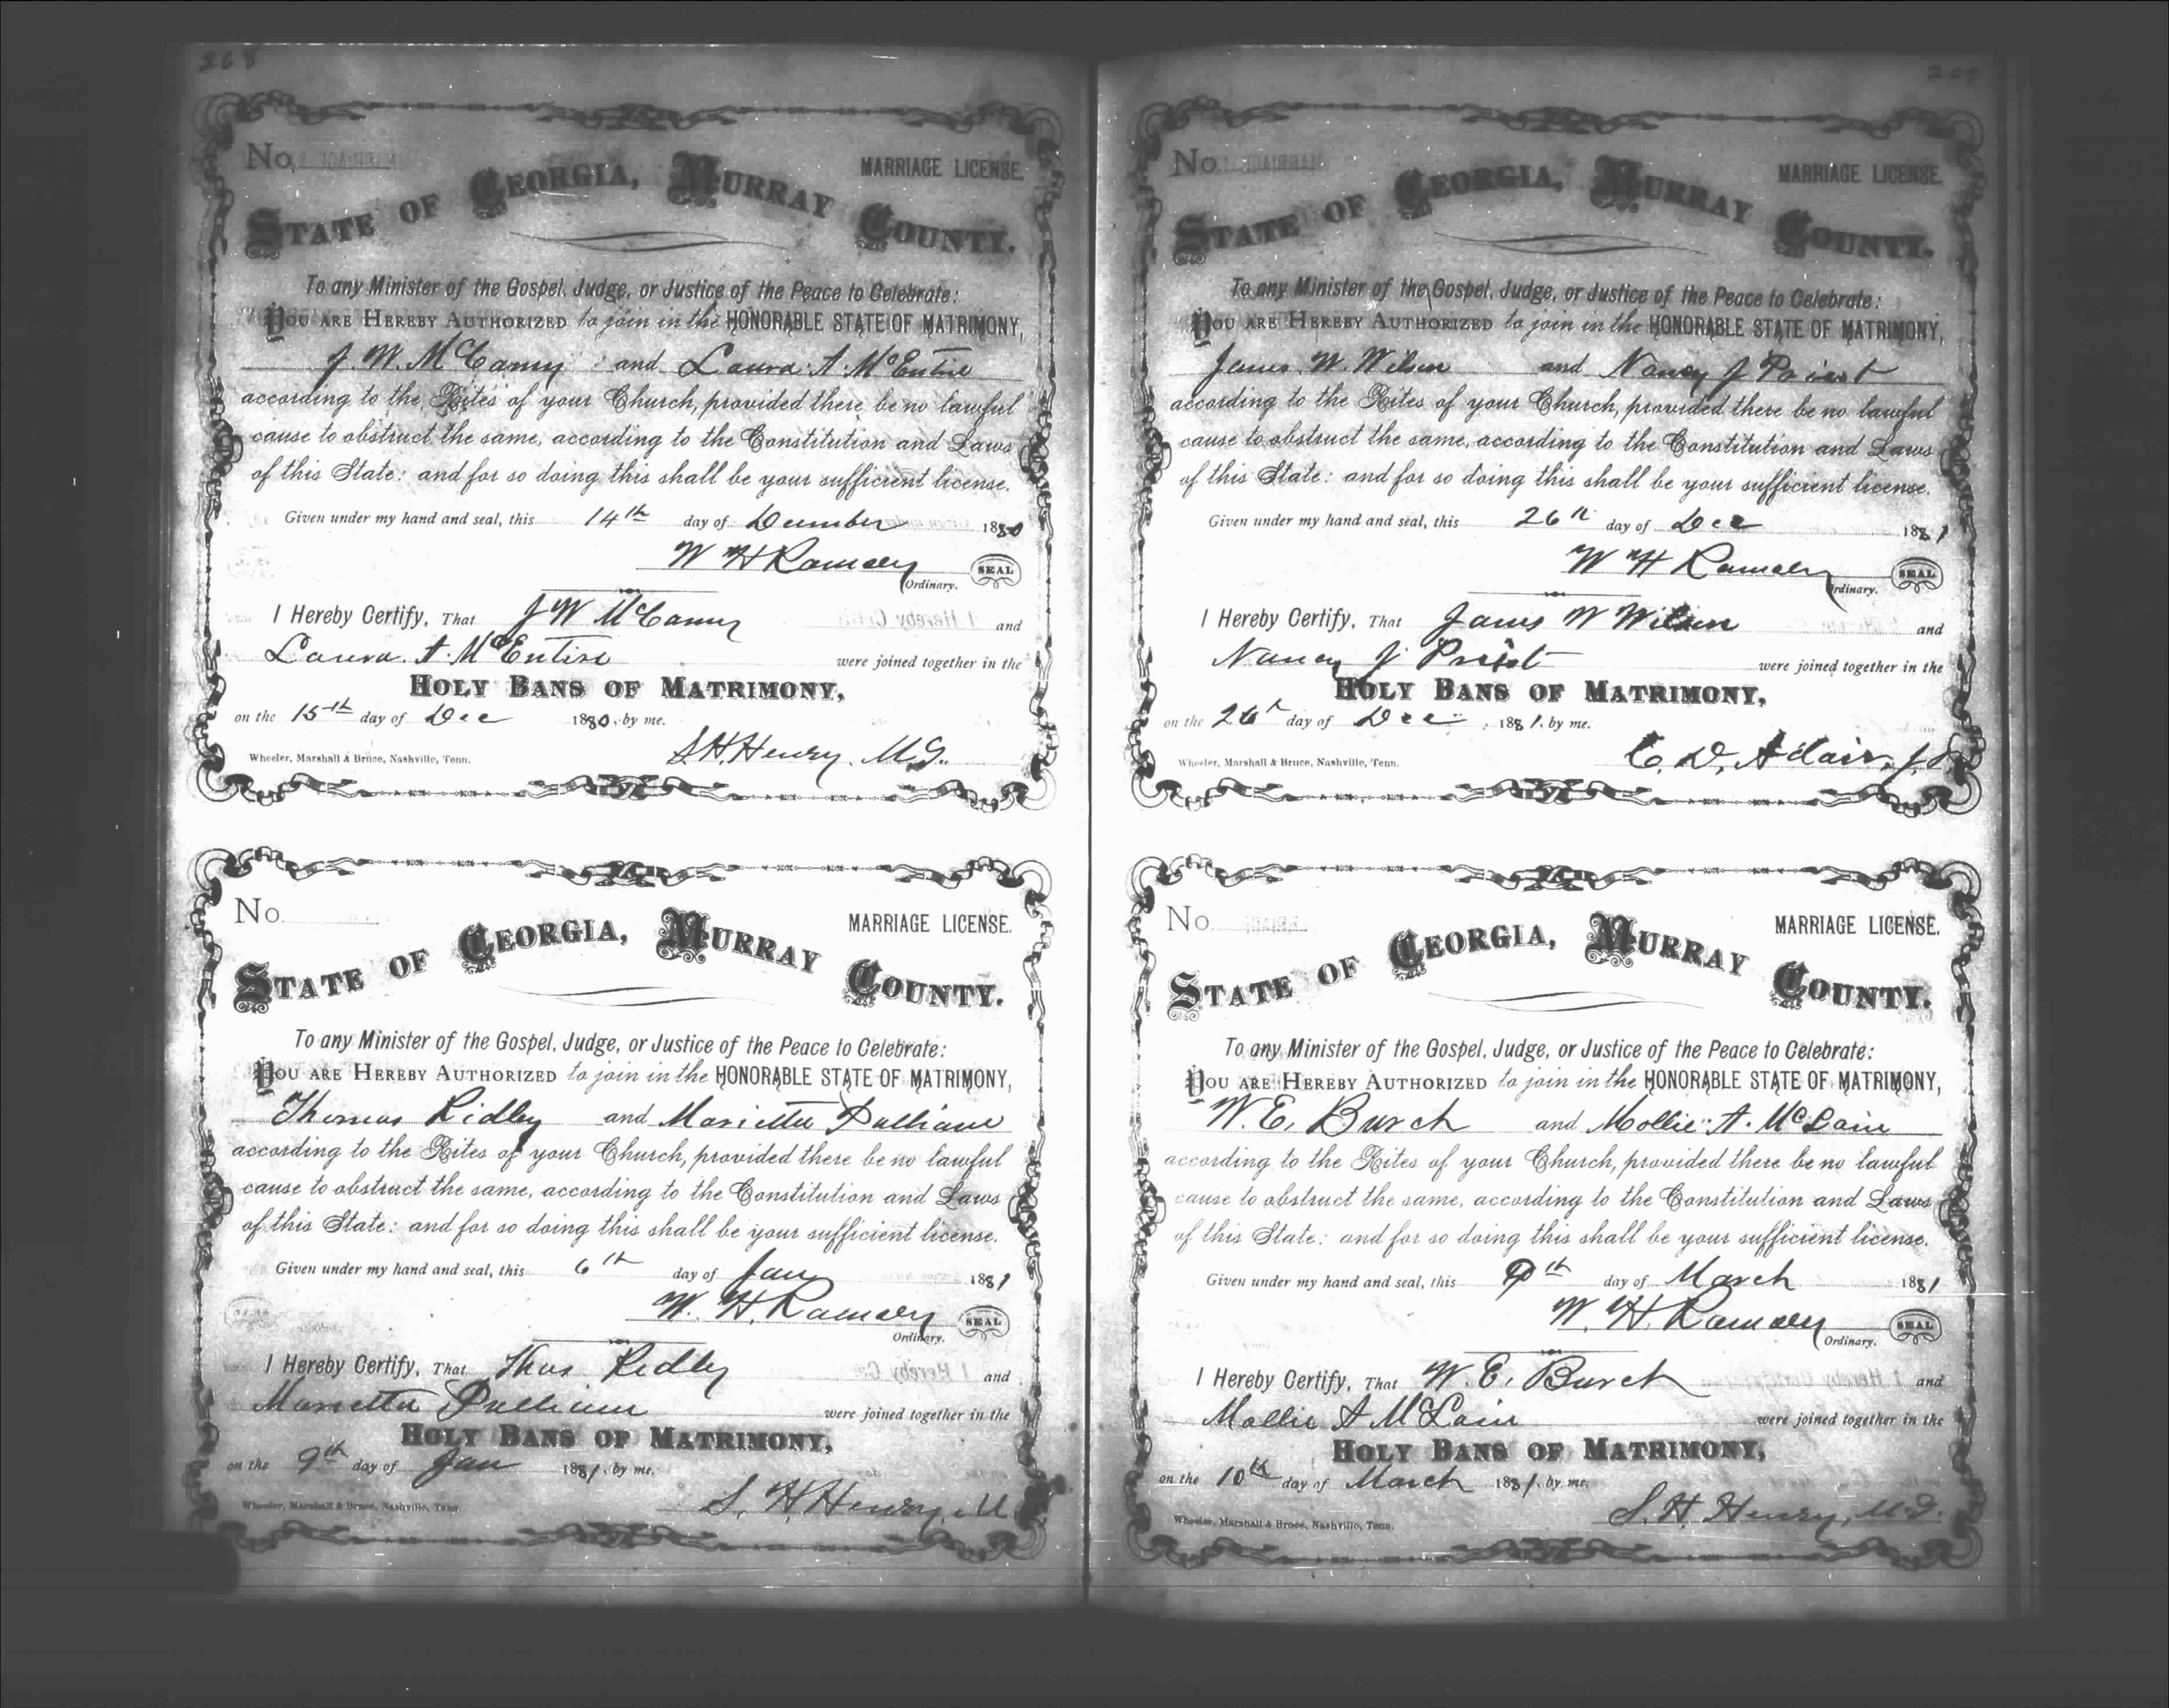 268
No.
MARRIAGE LICENSE.
STATE OF GEORGIA, MURRAY COUNTY.
To any Minister of the Gospel, Judge, or Justice of the Peace to Celebrate:
YOU ARE HEREBY AUTHORIZED to join in the HONORABLE STATE OF MATRIMONY,
J. W. McCamy and Laura A. McEntire
according to the Rites of your Church, provided there be no lawful
cause to obstruct the same, according to the Constitution and Laws
of this State: and for so doing this shall be your sufficient license.
Given under my hand and seal, this 14th day of December 1880
W H Ramsey SEAL
Ordinary.
I Hereby Certify, That J W McCamy and
Laura A. McEntire were joined together in the
HOLY BANS OF MATRIMONY,
on the 15th day of Dec 1880, by me.
S. H. Henry, M.G.
Wheeler, Marshall & Bruce, Nashville, Tenn.
No.
MARRIAGE LICENSE.
STATE OF GEORGIA, MURRAY COUNTY.
To any Minister of the Gospel, Judge, or Justice of the Peace to Celebrate:
YOU ARE HEREBY AUTHORIZED to join in the HONORABLE STATE OF MATRIMONY,
Thomas Ridley and Marietta Pulliam
according to the Rites of your Church, provided there be no lawful
cause to obstruct the same, according to the Constitution and Laws
of this State: and for so doing this shall be your sufficient license.
Given under my hand and seal, this 6th day of Jany 1881
W. H. Ramsey SEAL
Ordinary.
I Hereby Certify, That Thos Ridley and
Marietta Pulliam were joined together in the
HOLY BANS OF MATRIMONY,
on the 9th day of Jan 1881, by me.
S. H. Henry, M
Wheeler, Marshall & Bruce, Nashville, Tenn.
No.
MARRIAGE LICENSE.
STATE OF GEORGIA, MURRAY COUNTY.
To any Minister of the Gospel, Judge, or Justice of the Peace to Celebrate:
YOU ARE HEREBY AUTHORIZED to join in the HONORABLE STATE OF MATRIMONY,
James W. Wilson and Nancy J Priest
according to the Rites of your Church, provided there be no lawful
cause to obstruct the same, according to the Constitution and Laws
of this State: and for so doing this shall be your sufficient license.
Given under my hand and seal, this 26th day of Dec 1881
W H Ramsey SEAL
Ordinary.
I Hereby Certify, That James W Wilson and
Nancy J Priest were joined together in the
HOLY BANS OF MATRIMONY,
on the 26th day of Dec 1881, by me.
C. D. Adair, J.P.
Wheeler, Marshall & Bruce, Nashville, Tenn.
No.
MARRIAGE LICENSE.
STATE OF GEORGIA, MURRAY COUNTY.
To any Minister of the Gospel, Judge, or Justice of the Peace to Celebrate:
YOU ARE HEREBY AUTHORIZED to join in the HONORABLE STATE OF MATRIMONY,
W. E. Burch and Mollie A. McLain
according to the Rites of your Church, provided there be no lawful
cause to obstruct the same, according to the Constitution and Laws
of this State: and for so doing this shall be your sufficient license.
Given under my hand and seal, this 9th day of March 1881
W. H. Ramsey SEAL
Ordinary.
I Hereby Certify, That W. E. Burch and
Mollie A McLain were joined together in the
HOLY BANS OF MATRIMONY,
on the 10th day of March 1881, by me.
S. H. Henry, M.G.
Wheeler, Marshall & Bruce, Nashville, Tenn.